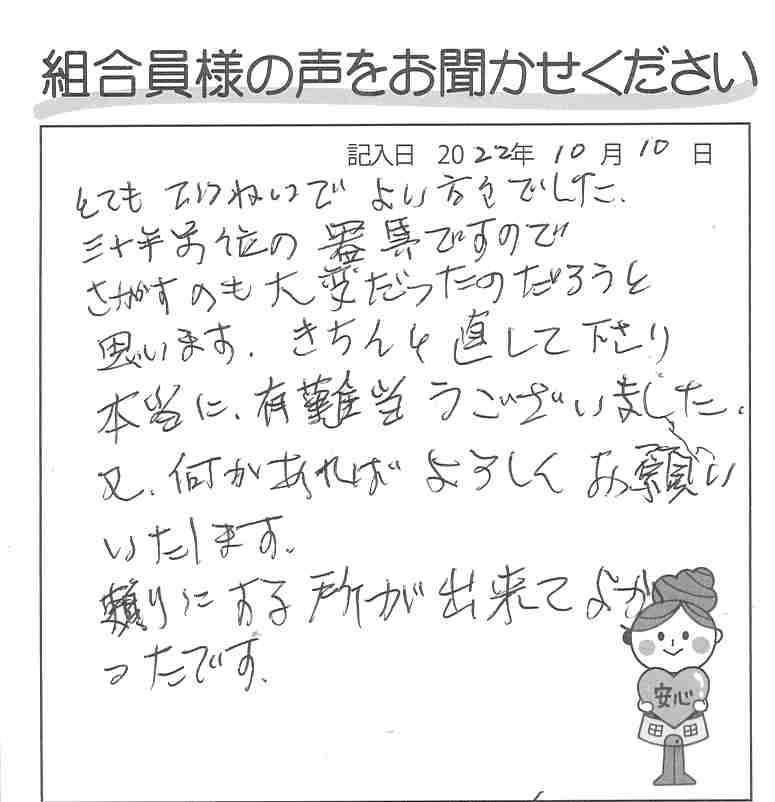 組合員様の声をお聞かせください
記入日 2022年 10月 10日
とても ていねいで よい方々でした、
三十年前位の 器具ですので
さがすのも大変だったのだろうと
思います. きちんと直して下さり
本当に、有難当うございました.
又、何かあれば よろしく お願い
いたします.
頼りにする所が出来てよか
ったです.
安心